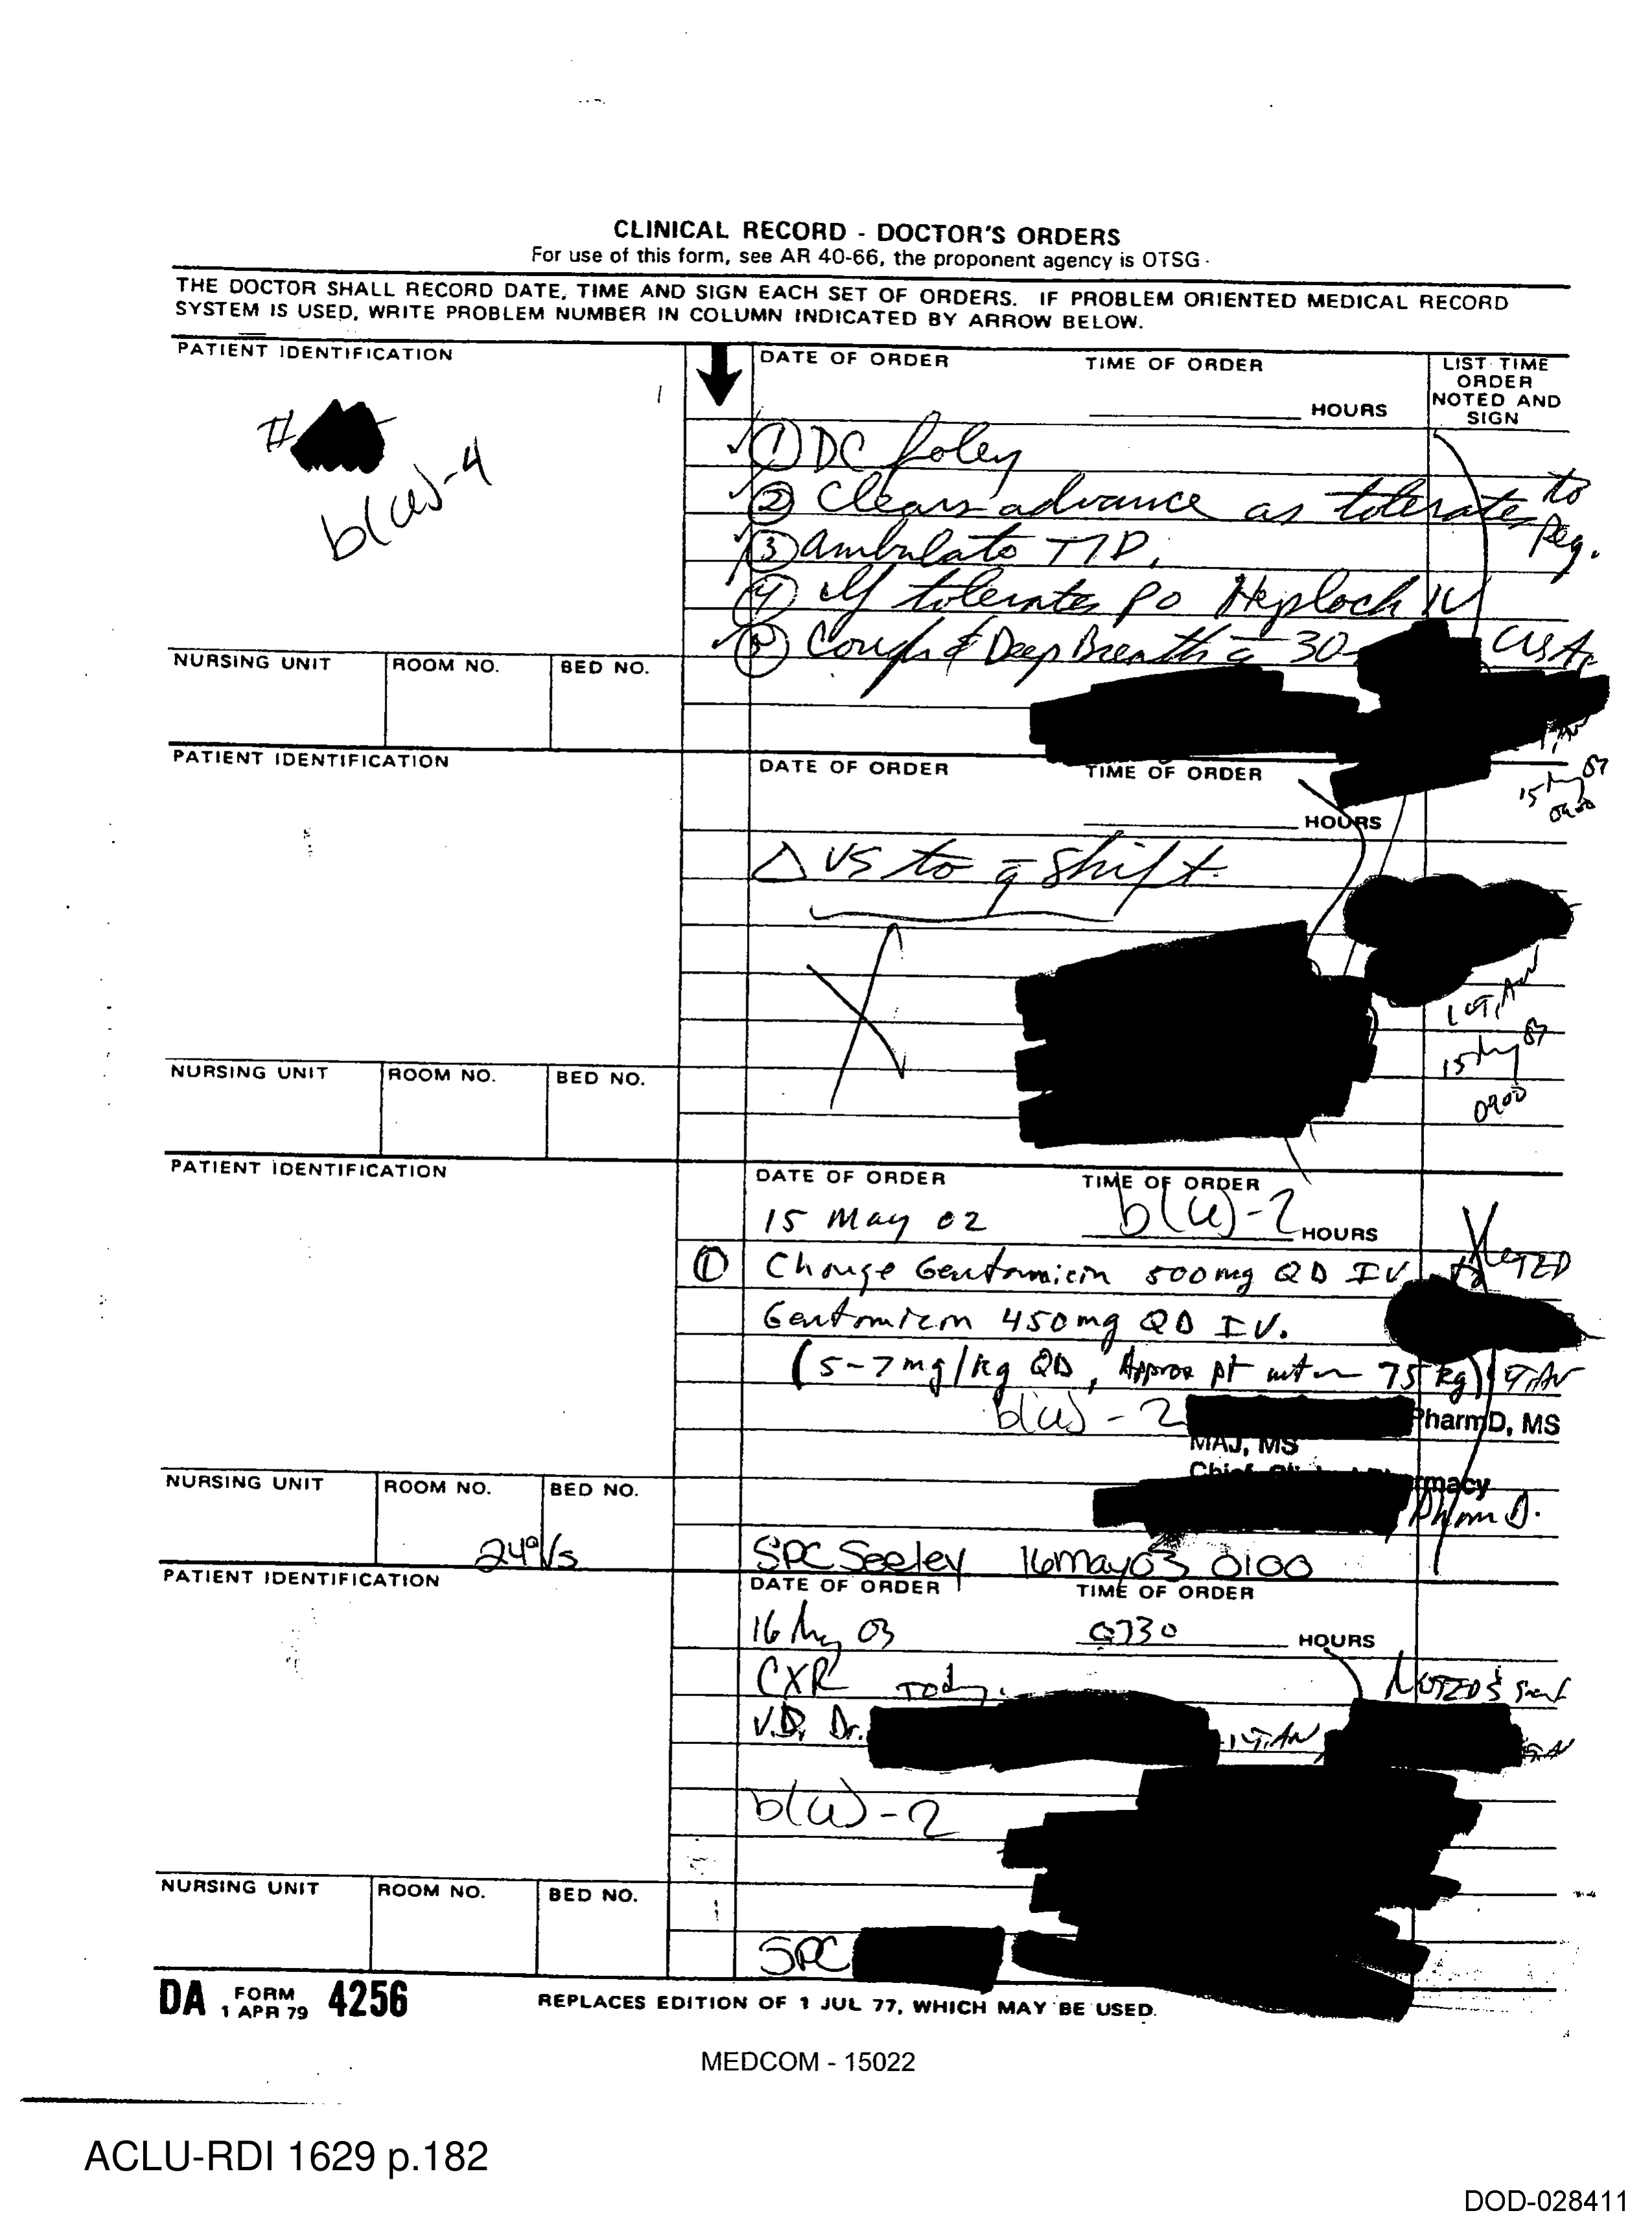 CLINICAL RECORD - DOCTOR'S ORDERS
For use of this form, see AR 40-66, the proponent agency is OTSG
THE DOCTOR SHALL RECORD DATE, TIME AND SIGN EACH SET OF ORDERS. IF PROBLEM ORIENTED MEDICAL RECORD
SYSTEM IS USED, WRITE PROBLEM NUMBER IN COLUMN INDICATED BY ARROW BELOW.
PATIENT IDENTIFICATION
DATE OF ORDER TIME OF ORDER
HOURS
LIST TIME
ORDER
NOTED AND
SIGN
#
b(6)-4
① DC foley
② Clears advance as tolerates to
Reg.
③ Ambulate TID.
④ If tolerates po Heplock IV
⑤ Cough & Deep Breath q 30
NURSING UNIT ROOM NO. BED NO.
15 May 03
0900
PATIENT IDENTIFICATION
DATE OF ORDER TIME OF ORDER
HOURS
Δ VS to q shift
1LT, AN
15 May 03
0900
NURSING UNIT ROOM NO. BED NO.
PATIENT IDENTIFICATION
DATE OF ORDER TIME OF ORDER
15 May 02 b(6)-2 HOURS
① Change Gentamicin 500mg QD IV to
NOTED
Gentamicin 450mg QD IV.
(5-7mg/kg QD, Approx pt wt 75 kg)
b(6)-2 PharmD, MS
MAJ, MS
Pharm D.
NURSING UNIT ROOM NO. BED NO.
24° √s
SPC Seeley 16May03 0100
PATIENT IDENTIFICATION
DATE OF ORDER TIME OF ORDER
16 May 03 0730 HOURS
CXR Today.
NOTED
V.O. Dr. 1LT, AN
b(6)-2
NURSING UNIT ROOM NO. BED NO.
SPC
DA FORM 4256
1 APR 79
REPLACES EDITION OF 1 JUL 77, WHICH MAY BE USED.
MEDCOM - 15022
ACLU-RDI 1629 p.182
DOD-028411